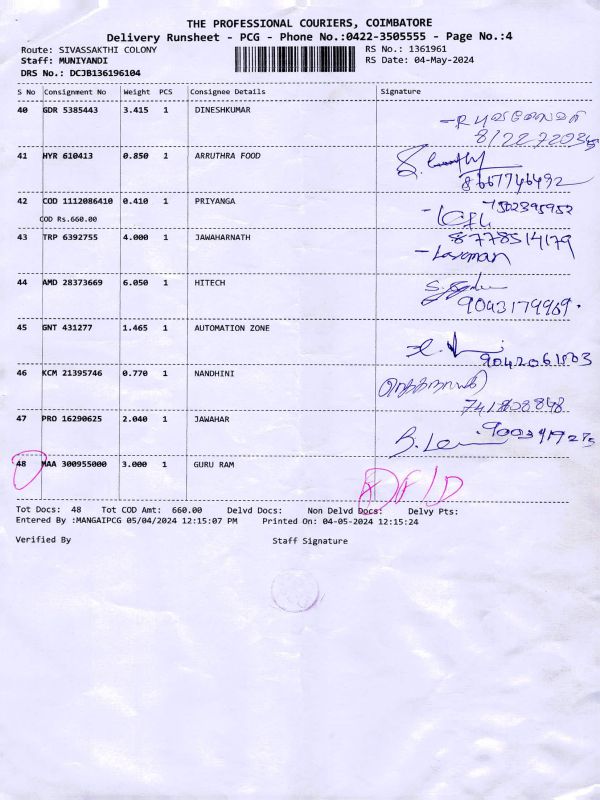 THE PROFESSIONAL COURIERS, COIMBATORE
Delivery Runsheet - PCG - Phone No.:0422-3505555 - Page No.:4
Route: SIVASSAKTHI COLONY RS No.: 1361961
Staff: MUNIYANDI RS Date: 04-May-2024
DRS No.: DCJB136196104
S No Consignment No Weight PCS Consignee Details Signature
40 GDR 5385443 3.415 1 DINESHKUMAR
41 HYR 610413 0.850 1 ARRUTHRA FOOD
8667746492
42 COD 1112086410 0.410 1 PRIYANGA 7502395952
COD Rs.660.00
43 TRP 6392755 4.000 1 JAWAHARNATH 8778514179
- Laxman
44 AMD 28373669 6.050 1 HITECH
9043179969.
45 GNT 431277 1.465 1 AUTOMATION ZONE
46 KCM 21395746 0.770 1 NANDHINI
47 PRO 16290625 2.040 1 JAWAHAR
48 MAA 300955000 3.000 1 GURU RAM
Tot Docs: 48 Tot COD Amt: 660.00 Delvd Docs: Non Delvd Docs: Delvy Pts:
Entered By :MANGAIPCG 05/04/2024 12:15:07 PM Printed On: 04-05-2024 12:15:24
Verified By Staff Signature